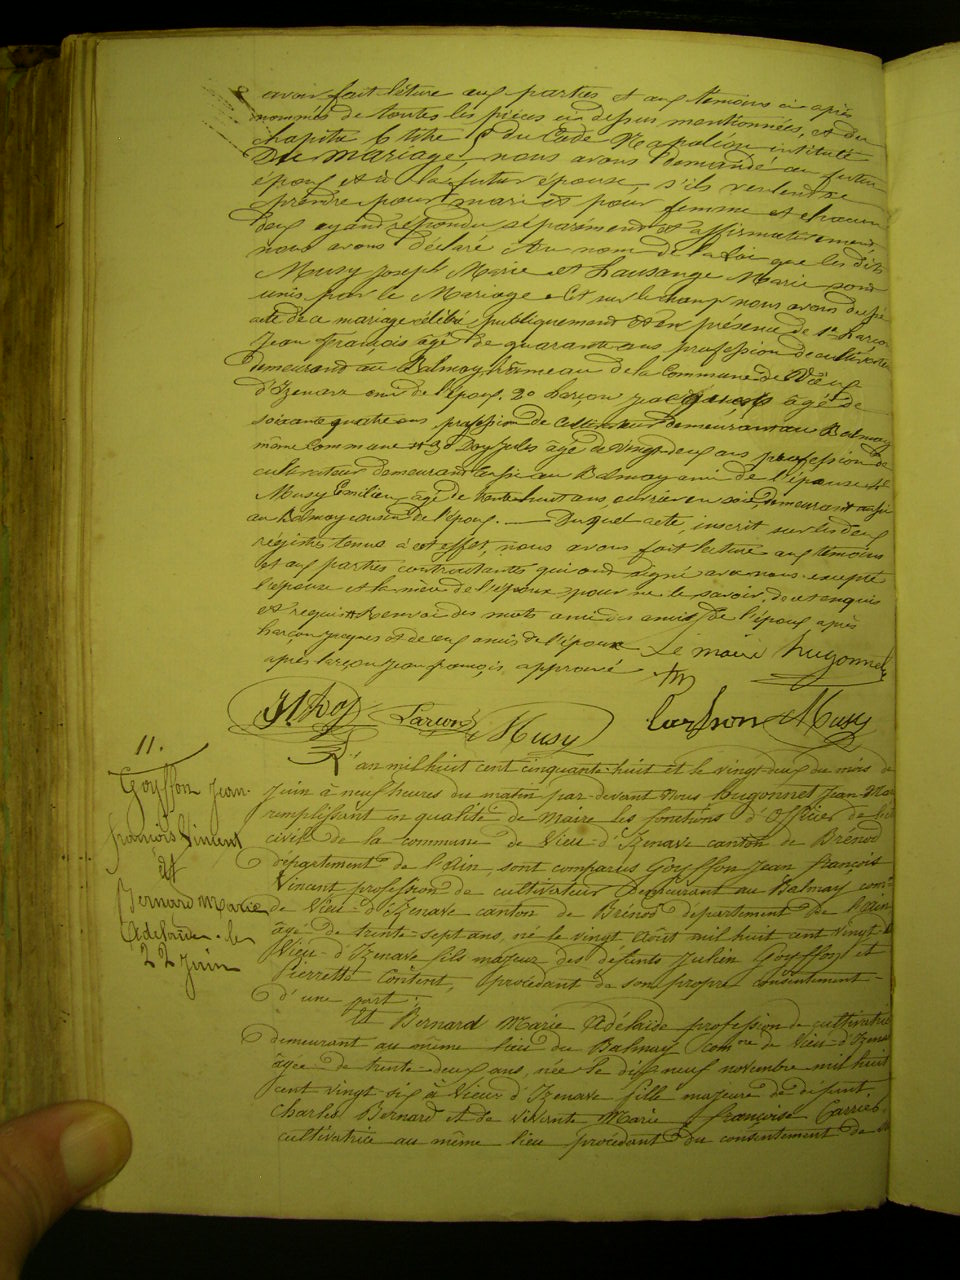 avoir fait lecture aux parties et aux témoins ci après
nommés de toutes les pièces ci dessus mentionnées, et du
chapitre 6 titre 5 du Code Napoléon intitulé
Du Mariage, nous avons demandé au futur
époux et à la future épouse, s'ils veulent se
prendre pour mari et pour femme et chacun
deux ayand répondu séparément et affirmativement
nous avons déclaré Au nom de la Loi que les dits
Musy Joseph Marie et Lausange Marie sont
unis par le Mariage. Et sur le champ nous avons dressé
acte de ce mariage célébré publiquement et en présence de 1º Larçon
Jean françois âgé de quarante ans profession de cultivateur
demeurand au Balmay, hameau de la Commune de Vieux
d'Izenave ami de l'époux. 2º Larçon Jacques âgé de
soixante quatre ans profession de cultivateur demeurant au Balmay
même Commune 3º Doy Jules âgé de vingt deux ans profession de
cultivateur demeurant aussi au Balmay ami de l'épouse 4º
Musy Emilien âgé de trente huit ans, ouvrier en soie, demeurant aussi
au Balmay cousin de l'époux. — Duquel acte, inscrit sur les deux
régistres tenus à cet effet, nous avons fait lecture aux témoins
et aux parties contractantes qui ont signé avec nous excepté
l'épouse et la mère de l'époux pour ne le savoir, de ce enquis
et requis Renvoi des mots amie des amis de l'époux après
Larçon Jacques et de ceux amis de l'époux Le maire hugonnet
après Larçon Jean françois, approuvé
J Doy Larçon Musy Larçon Musy
11.
Goyffon Jean
françois Vincent
et
Bernard Marie
Adelaïde. le
22 Juin
L'an mil huit cent cinquante-huit et le vingt deux du mois de
Juin à neuf heures du matin par-devant Nous hugonnet Jean-Marie
remplissant en qualité de Maire les fonctions d'Officier de l'état
civil de la commune de Vieu-d'Izenave canton de Brénod
département de l'Ain, sont comparus Goyffon Jean françois
Vincent profession de cultivateur Demeurant au Balmay comne
de Vieu-d'Izenave canton de Brénod département de l'Ain
âgé de trente-sept ans, né le vingt Août mil huit cent vingt à
Vieu-d'Izenave fils majeur des défunts Julien Goyffon et
Pierrette Contont, procédant de son propre consentement
d'une part;
Et Bernard Marie Adélaïde profession de cultivatrice
demeurant au même lieu du Balmay comne de Vieu-d'Izenave
âgée de trente-deux ans, née le dix neuf novembre mil huit
cent vingt-six à Vieu d'Izenave fille majeure de défunt
Charles Bernard et de vivante Marie françoise Carrier,
cultivatrice au même lieu procédant du consentement de sa